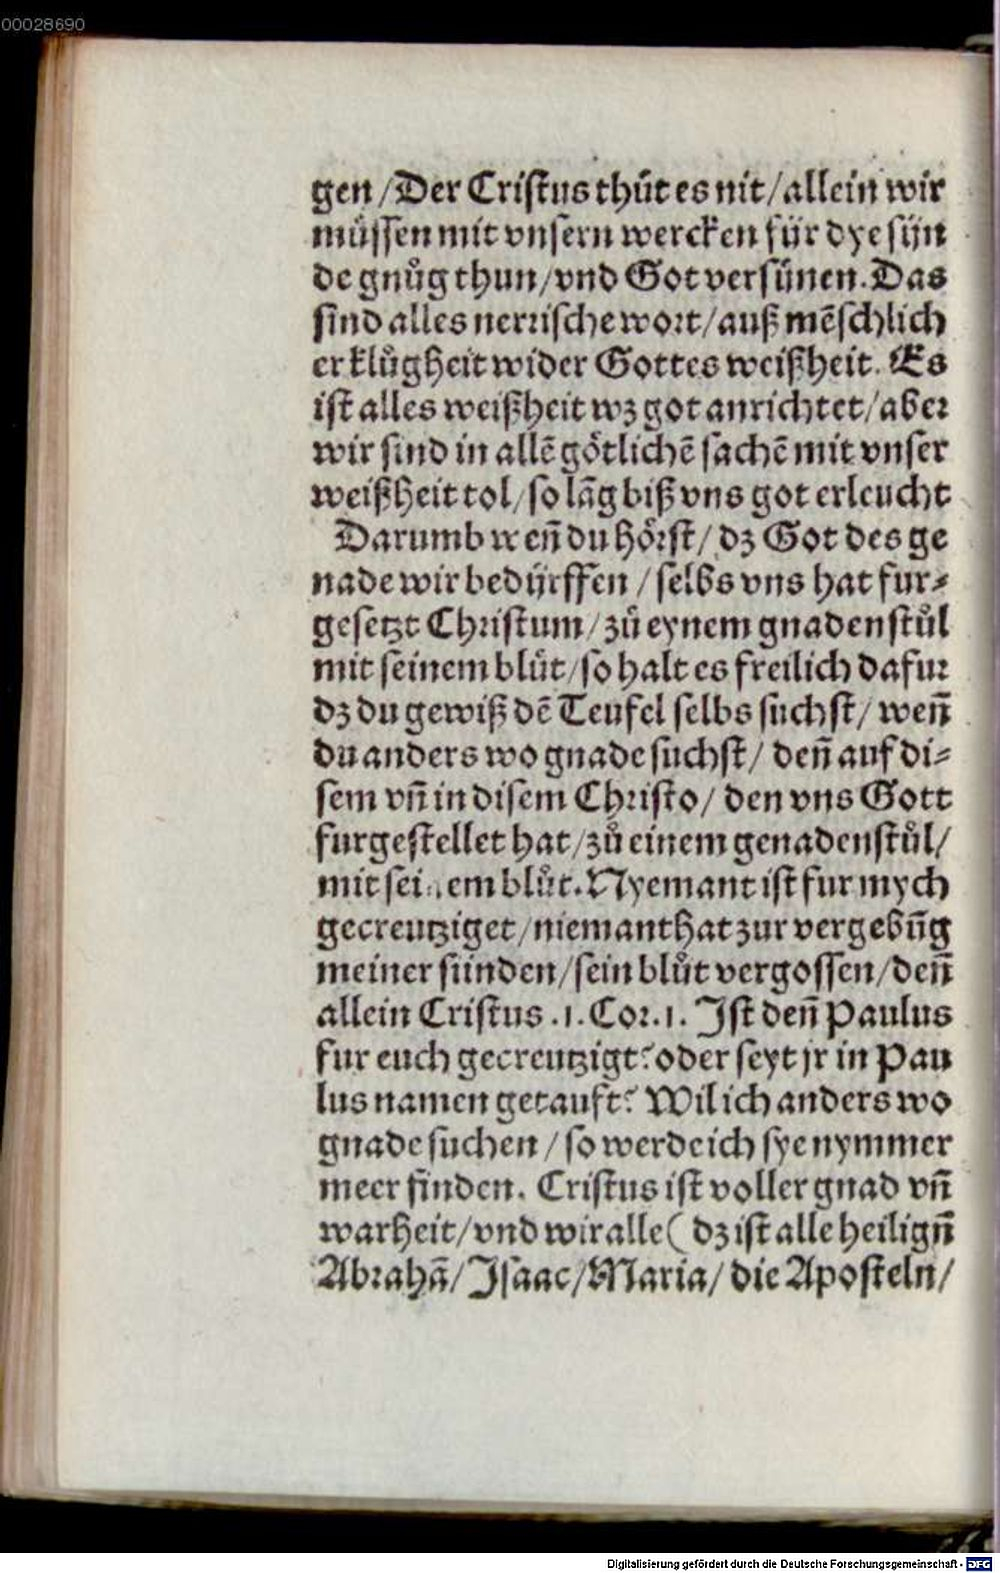 00028690
gen /Der Cristus thůt es nit/allein wir
müssen mit vnsern wercken für dye sün
de gnůg thun/vnd Got versünen. Das
sind alles nerrische wort/auß mēschlich
er klůgheit wider Gottes weißheit. Es
ist alles weißheit wz got anrichtet/aber
wir sind in allē götlichē sachē mit vnser
weißheit tol/so lāg biß vns got erleucht
Darumb weñ du hörst/ dz Got des ge
nade wir bedürffen /selbs vns hat fur-
gesetzt Christum/zů eynem gnadenstůl
mit seinem blůt/so halt es freilich dafur
dz du gewiß dē Teufel selbs suchst/ weñ
du anders wo gnade suchst/ deñ auf di-
sem vñ in disem Christo/ den vns Gott
furgestellet hat/zů einem genadenstůl/
mit seinem blůt. Nyemant ist fur mych
gecreutziget/niemant hat zur vergebūg
meiner sünden/sein blůt vergossen/deñ
allein Cristus .1. Cor.1. Ist deñ Paulus
fur euch gecreutzigt? oder seyt jr in Pau
lus namen getauft? Wil ich anders wo
gnade suchen /so werde ich sye nymmer
meer finden. Cristus ist voller gnad vñ
warheit/vnd wir alle( dz ist alle heilign̄
Abrahā/Isaac/Maria/ die Aposteln/
Digitalisierung gefördert durch die Deutsche Forschungsgemeinschaft - DFG